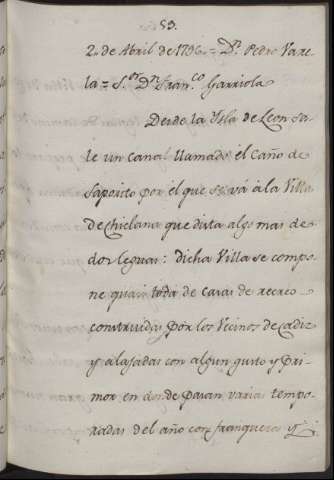 53.
2. de Abril de 1796 = Dn. Pedro Vare
la = Sor. Dn. Fran.co Garriola
Desde la Ysla de Leon sa
le un canal llamado el Caño de
Saporito por el que se vá á la Villa
de Chiclana que dista algo mas de
dos leguas: dicha Villa se compo
ne quasi toda de casas de recreo
construidas por los Vecinos de Cadiz
y alajadas con algun gusto y pri
mor en donde pasan varias tempo
radas del año con franqueza y